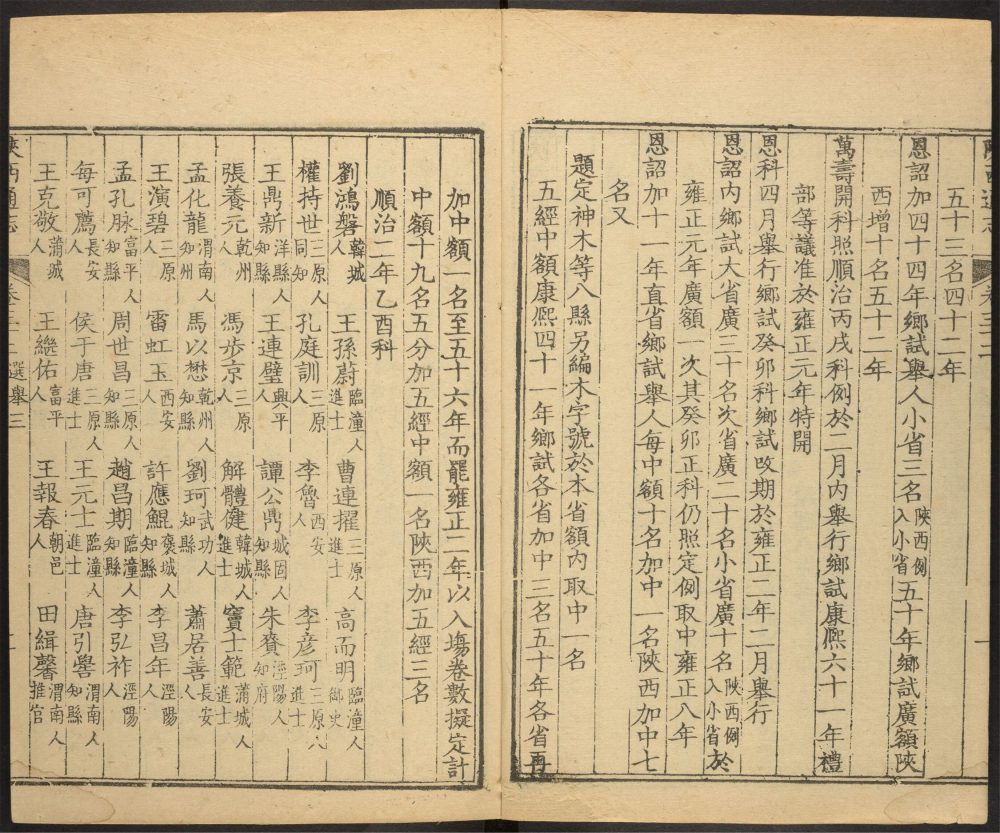 陝西通志 卷三十二
五十三名四十二年
恩詔加四十四年鄉試舉人小省三名陝西例入小省五十年鄉試廣額陝
西增十名五十二年
萬壽開科照順治丙戌科例於二月內舉行鄉試康熙六十一年禮
部等議准於雍正元年特開
恩科四月舉行鄉試癸卯科鄉試改期於雍正二年二月舉行
恩詔內鄉試大省廣三十名次省廣二十名小省廣十名陝西例入小省於
雍正元年廣額一次其癸卯正科仍照定例取中雍正八年
恩詔加十一年直省鄉試舉人每中額十名加中一名陝西加中七
名又
題定神木等八縣另編木字號於本省額內取中一名
五經中額康熙四十一年鄉試各省加中三名五十年各省再
加中額一名至五十六年而罷雍正二年以入場卷數擬定計
中額十九名五分加五經中額一名陝西加五經三名
順治二年乙酉科
劉鴻磐韓城 王孫蔚臨潼人進士 曹連擢三原人進士 高而明臨潼人御史
權持世三原人同知 孔庭訓三原人 李魯西安人 李彥珂三原人進士
王鼎新洋縣人知縣 王連璧興平人 譚公鼎城固人知縣 朱賚涇陽人知府
張養元乾州人 馮步京三原人 解體健韓城人進士 竇士範蒲城人進士
孟化龍渭南人知州 馬以懋乾州人知縣 劉珂武功人知縣 蕭居善長安人
王演碧三原人 雷虹玉西安人 許應鯤褒城人知縣 李昌年涇陽人
孟孔脉富平人知縣 周世昌三原人知縣 趙昌期臨潼人知縣 李弘祚涇陽人
每可薦長安人 侯于唐三原人進士 王元士臨潼人進士 唐引譽渭南人知縣
王克敬蒲城人 王繼佑富平人 王報春朝邑人 田緝馨渭南人推官
陝西通志 卷三十二 選舉三